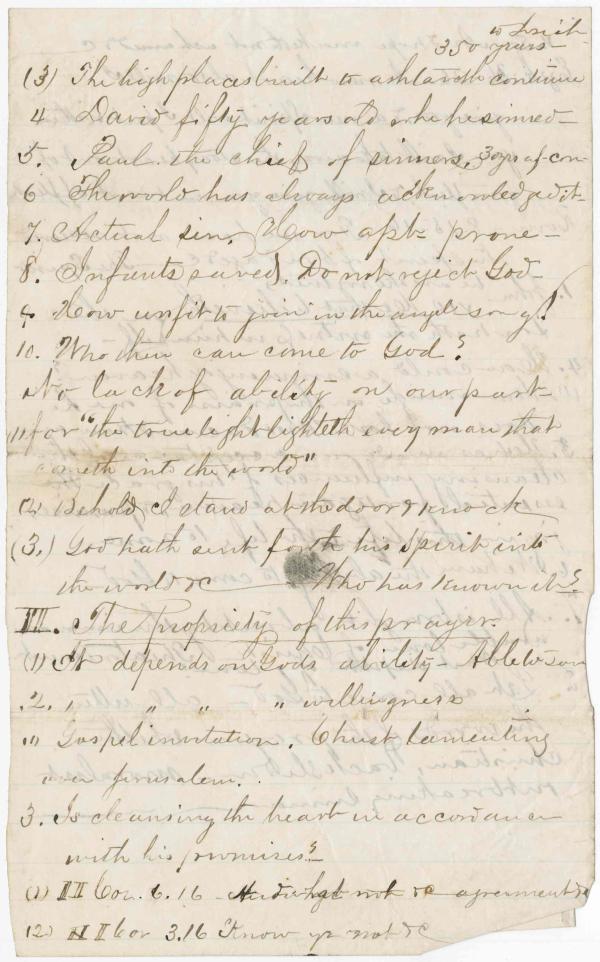 to Josiah
350 years
(3) The high places built to ashtaroth continue
4 David fifty years old when he sinned-
5. Paul. the chief of sinners, 30 ys af-con-
6 The world has always acknowledged it-
7. Actual sin. How apt- prone-
8. Infants saved. Do not reject God-
9 How unfit to join in the angels song!
10. Who then can come to God?
No lack of ability on our part-
(1) for "the true light lighteth every man that
cometh into the world"
(2) Behold, I stand at the door & knock
(3.) God hath sent forth his Spirit into
the world &c Who has known it?
III. The Propriety of this prayer.
(1) It depends on Gods ability- Able to save
2. " " " " willingness
(1) Gospel invitation. Christ lamenting
over Jerusalem.
3. Is cleansing the heart in accordance
with his promises?
(1) II Cor. 6.16 - And what &c agreement &c
(2) I Cor 3.16 Know ye not &c